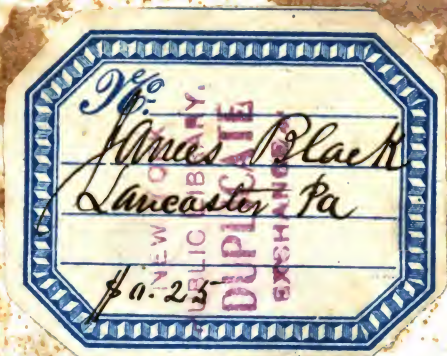 No.
James Black
Lancaster Pa
$0.25
NEW YORK
PUBLIC LIBRARY.
DUPLICATE
EXCHANGED.